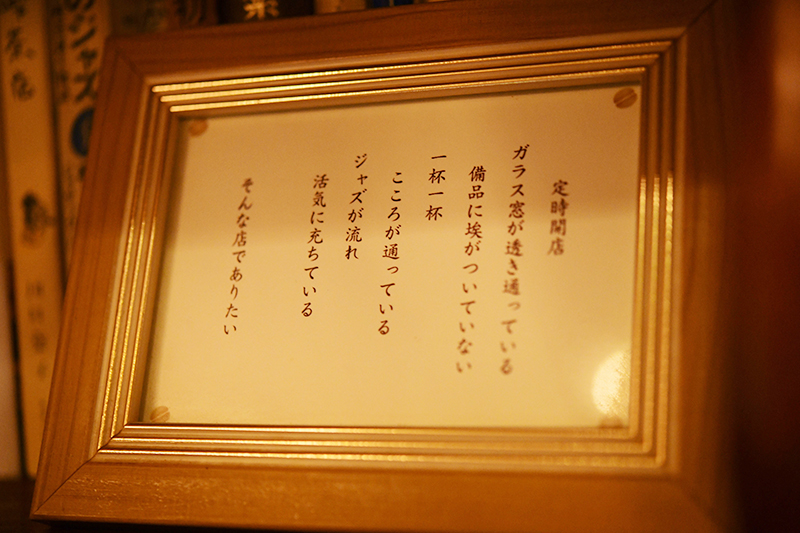 定時開店
ガラス窓が透き通っている
備品に埃がついていない
一杯一杯
こころが通っている
ジャズが流れ
活気に充ちている
そんな店でありたい
のジャズ